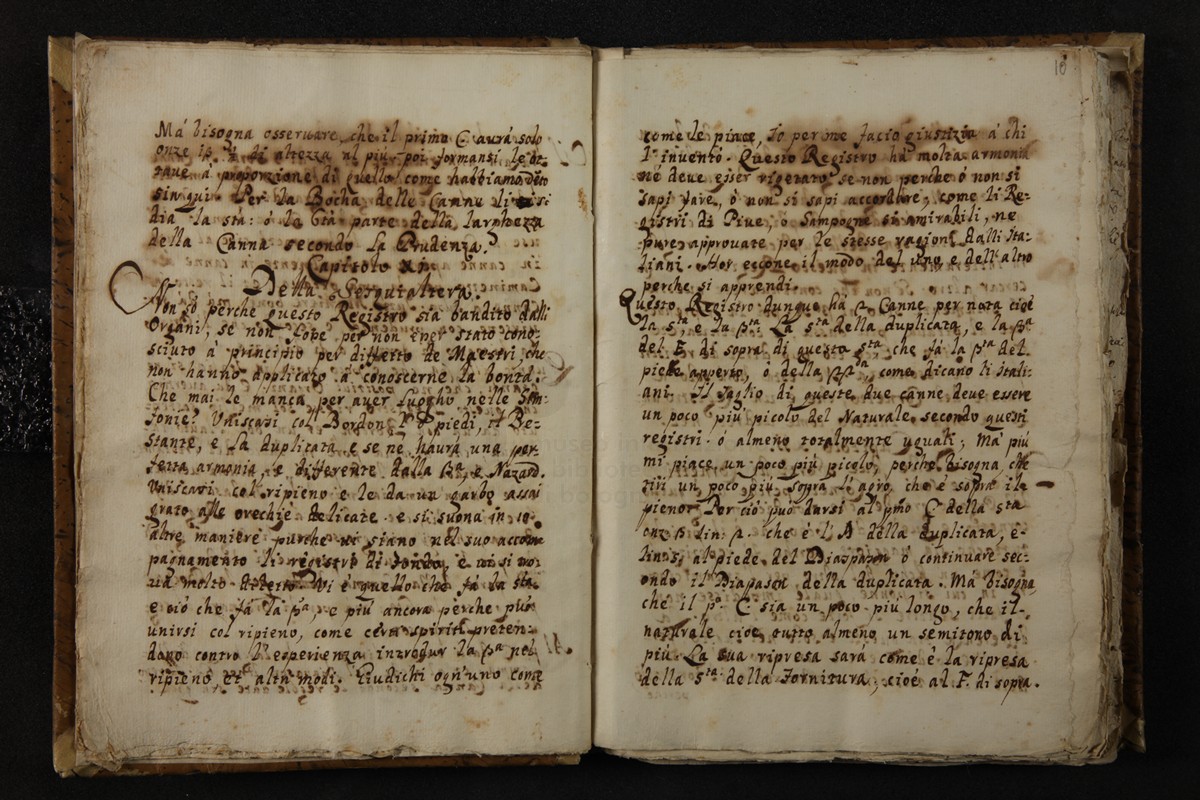 Má bisogna osservare, che il primo C aurá solo
onze di altezza al piú poi formansi le ot:
taue a proporzione di quello come habbiamo detto
sin qui. Per la Bocha delle Canne li si
dia la sta: ó la 6ta parte della larghezza
della Canna secondo la Prudenza.
Capitolo
Della Sesquialtera.
Non só perche questo Registro sia bandito dalli
Organi, se non fose per non esser stato cono:
sciuto á principio per diffetto de Maestri che
non hanno applicato á conoscerne la bontá.
Che mai le manca per auer luogho nelle Sin:
fonie? Uniscasi col Bordon, piedi, il Pre-
stante, e la duplicata, e se ne haurá una per
fetta armonia, e differente dalla e Nazard.
Uniscasi col ripieno e le da un garbo assai
grato alle orechie delicate e si suona in 10
altre maniere purche ui siano nel suo accom
pagnamento li registri di fondo, e ui si tro
ua molto diletto. Vi é quello che fá la sta
e ció che fá la pa, e piú ancora perche puó
unirsi col ripieno, come certi spiriti preten:
dano contro l'esperienza introdur la pa nel
ripieno et altri modi. Giudichi ogn'uno come
10
come le piace, Io per me facio giustizia á chi
l'inuentó. Questo Registro há molta armonia
né deue esser rigetato se non perche ó non si
sapi fare, ó non si sapi accordare, come li Re-
gistri di Piue, ó Sampogne si amirabili, ne
pure approuate per le stesse ragioni dalli Ita:
liani. Hor eccone il modo del uno e dell'altro
perche si apprendi.
Questo Registro dunque há 2 Canne per nota cioé
la sta, e la pa: La sta della duplicata, e la pa
del E. di sopra di questa sta, che fá la pa del
piede apperto, ó della come dicano li Itali:
ani. Il taglio di queste due canne deue essere
un poco piú picolo del Naturale secondo questi
registri ó almeno totalmente uguali; Má piú
mi piace un poco piú picolo, perche bisogna che
tiri un poco piú sopra l'agro, che é sopra il
pieno: Per ció puó darsi al pmo C della sta
onz lin: 2. che é l'A della duplicata, é-
lin al piede del Diapason ó continuare sec:
ondo il Diapason della duplicata. Má bisogna
che il po. C sia un poco piú longo, che il
naturale cioé tutto almeno un semitono di
piú. La sua ripresa sará come é la ripresa
della sta della Fornitura, cioé al F. di sopra.